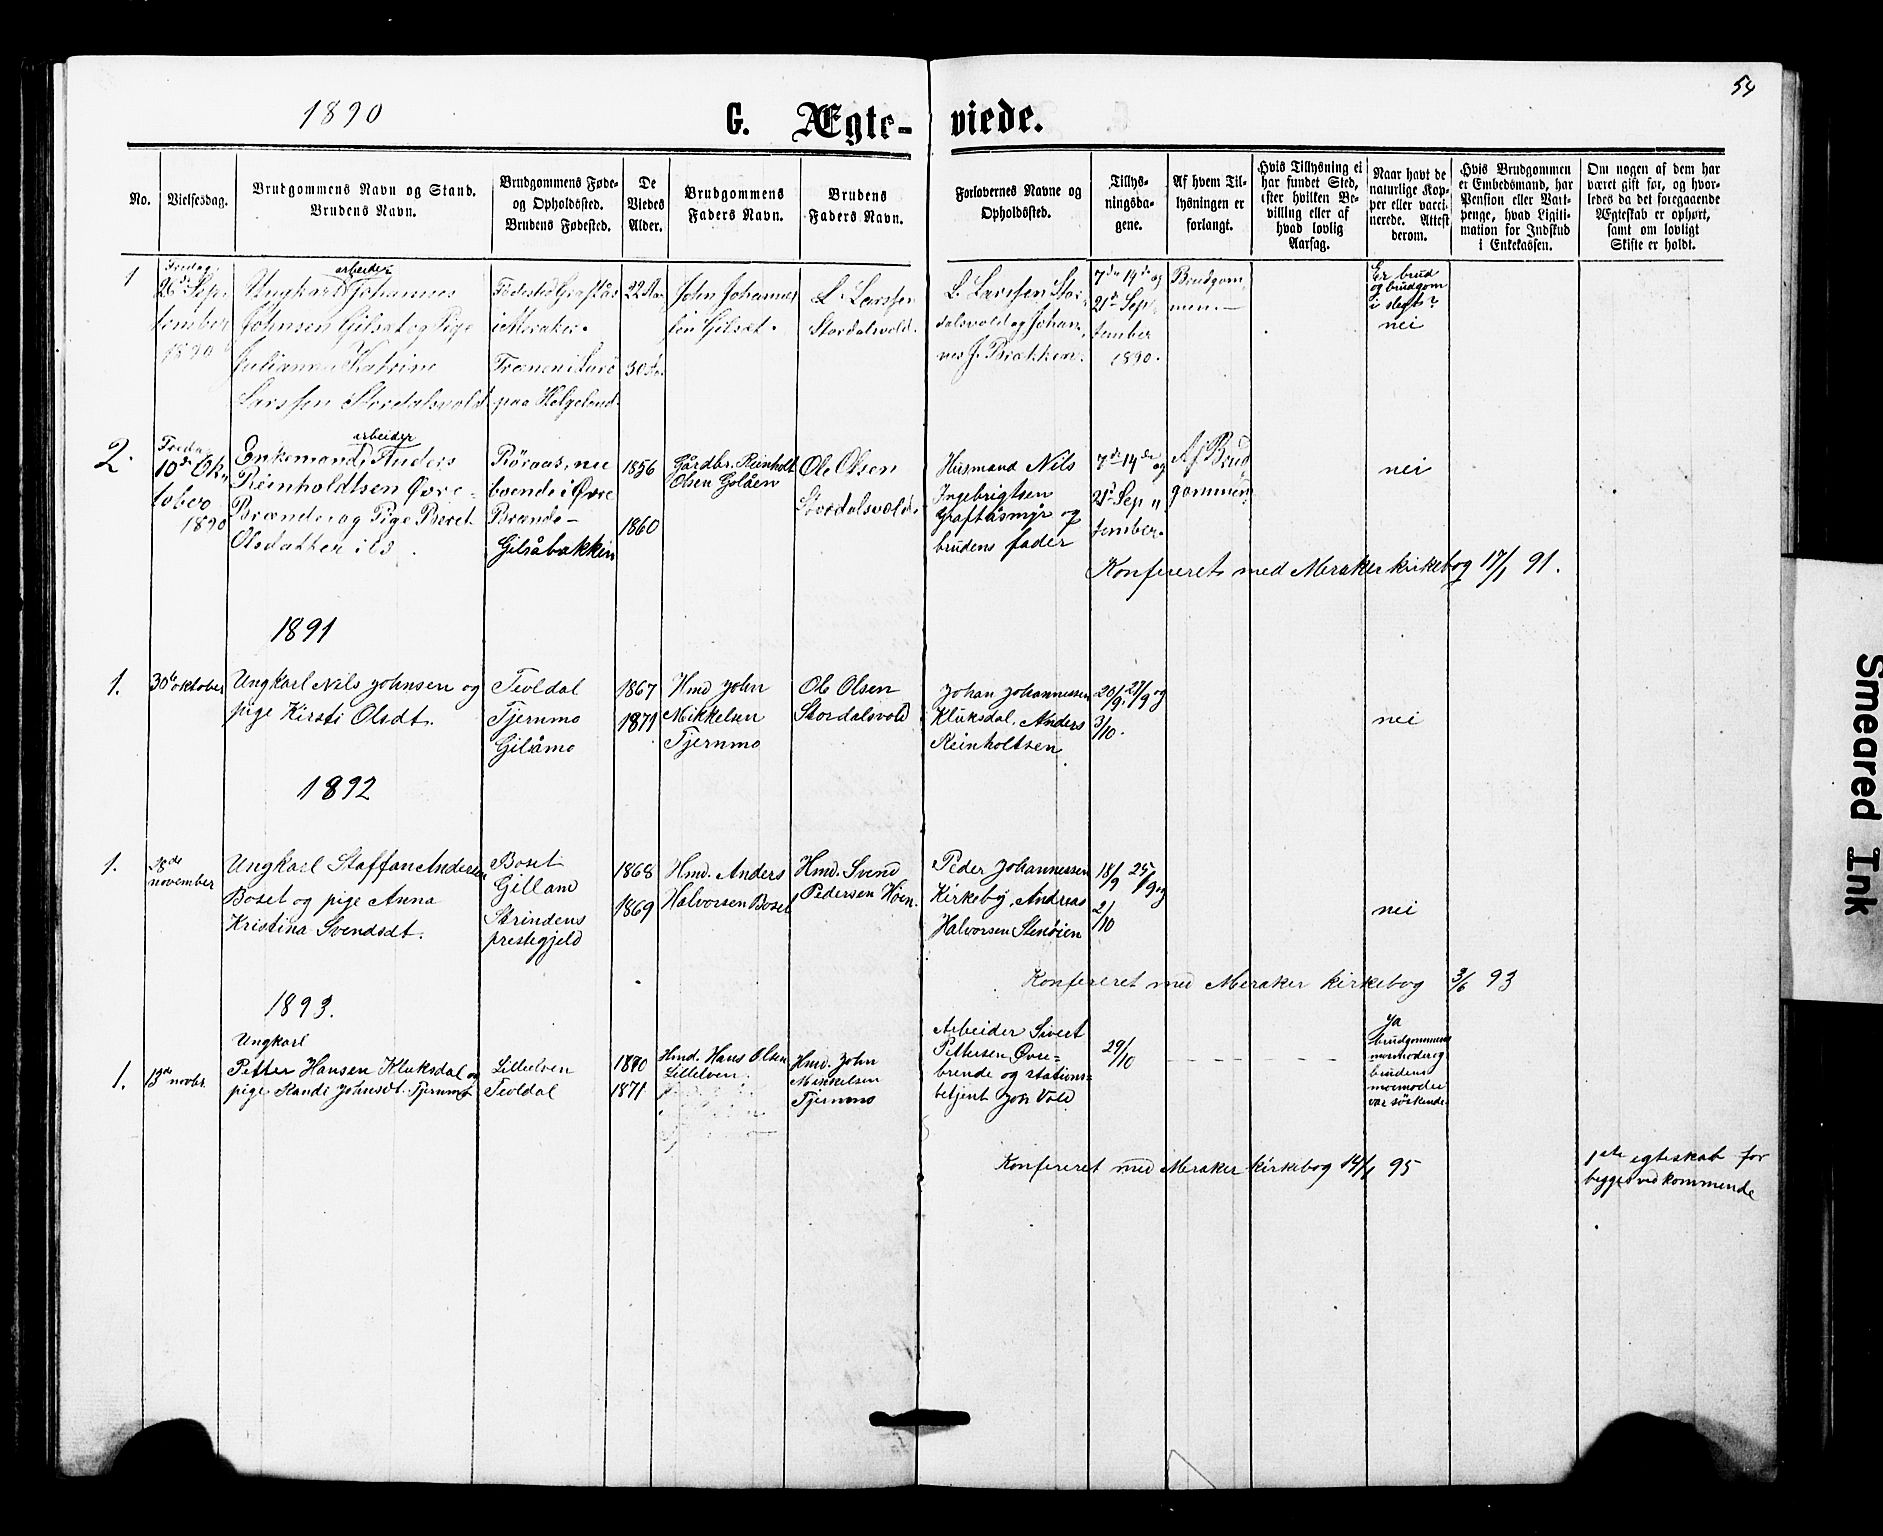 54
1890
G. Ægte- viede.
No.
Vielsesdag.
Brudgommens Navn og Stand.
Brudens Navn.
Brudgommens Føde-
og Opholdssted.
Brudens Fødested.
De
Viedes
Alder.
Brudgommens
Faders Navn.
Brudens
Faders Navn.
Forlovernes Navne og
Opholdssted.
Tillys-
ningsda-
gene.
Af hvem Til-
lysningen er
forlangt.
Hvis Tillysning ei
har fundet Sted,
efter hvilken Be-
villing eller af
hvad lovlig
Aarsag.
Naar havt de
naturlige Kop-
per eller vacci-
nerede. Attest
derom.
Hvis Brudgommen
er Embedsmand, har
Pension eller Vart-
penge, hvad Ligiti-
mation for Indskud
i Enkekassen.
Om nogen af dem har
været gift før, og hvor-
ledes da det foregaaende
Ægteskab er ophørt,
samt om lovligt
Skifte er holdt.
1
Fredag
26de Sep
tember
1890
arbeider
Ungkarl Johannes
Johnsen Gilset og Pige
Julianna Katrine
Larssen Stordalsvold
Fødested Graftås
i Meraker.
Trænen i Lurø
paa Helgeland.
22 Aar
30 Aar
John Johannes
sen Gilset.
L. Larssen
Stordalsvold.
L. Larssen Stor-
dalsvold og Johan-
nes J. Brækken.
7de 14de og
21de Sep
tember
1890.
Brudgom
men.
Er brud
og brudgom
i slegt?
nei
2.
Fredag
10de Ok
tober
1890
arbeider
Enkemand, Anders
Reinholdtsen Øvre-
Brænde og Pige Beret
Olsdatter ibd.
Røraas, nu
boende i Øvre
Brænde-
Gilsåbakken
1856
1860
Gårdbr. Reinholt
Olsen Golåen
Ole Olsen
Stordalsvold.
Husmand Nils
Ingebrigtsen
Graftåsmyr og
brudens fader
7de 14de og
21de Sep "
tember.
Af Brud
gommen
nei
Konfereret med Meraker kirkebog 17/1 91.
1891
1.
30te oktober
Ungkarl Nils Johnsen og
pige Kirsti Olsdt.
Teoldal
Tjernmo
Gilåmo
1867
1871
Hmd John
Mikkelsen
Tjernmo
Ole Olsen
Stordalsvold
Johan Johannessen
Kluksdal, Anders
Reinholtsen
20/9 27/9 og
3/10.
nei
1892
1.
18de
november
Ungkarl Staffan Andersen
Boset og pige Anna
Kristina Svendsdt.
Boset
Gillam
Strindens
prestegjeld
1868
1869
Hmd. Anders
Halvorsen Boset
Hmd. Svend
Pedersen Höen.
Peder Johannessen
Kirkeby, Andreas
Halvorsen Stenöien
18/9 25/9 og
2/10
nei
Konfereret med Meraker kirkebog 3/6 93
1893.
1.
13de novbr.
Ungkarl
Petter Hansen Kluksdal og
pige Randi Johnsdt. Tjernmo
Lillelven
Teoldal
1870
1871
Hmd. Hans Olsen
Lillelven.
Hmd. John
Mikkelsen
Tjernmo
Arbeider Sivert
Pettersen Øvre-
brende og stations-
betjent Jon Vold
29/10
Ja
brudgommens
mormoder og
brudens
mormoder
var söskende
Konfereret med Meraker kirkebog 14/1 95
1ste egteskab for
begges vedkommende
Smeared Ink